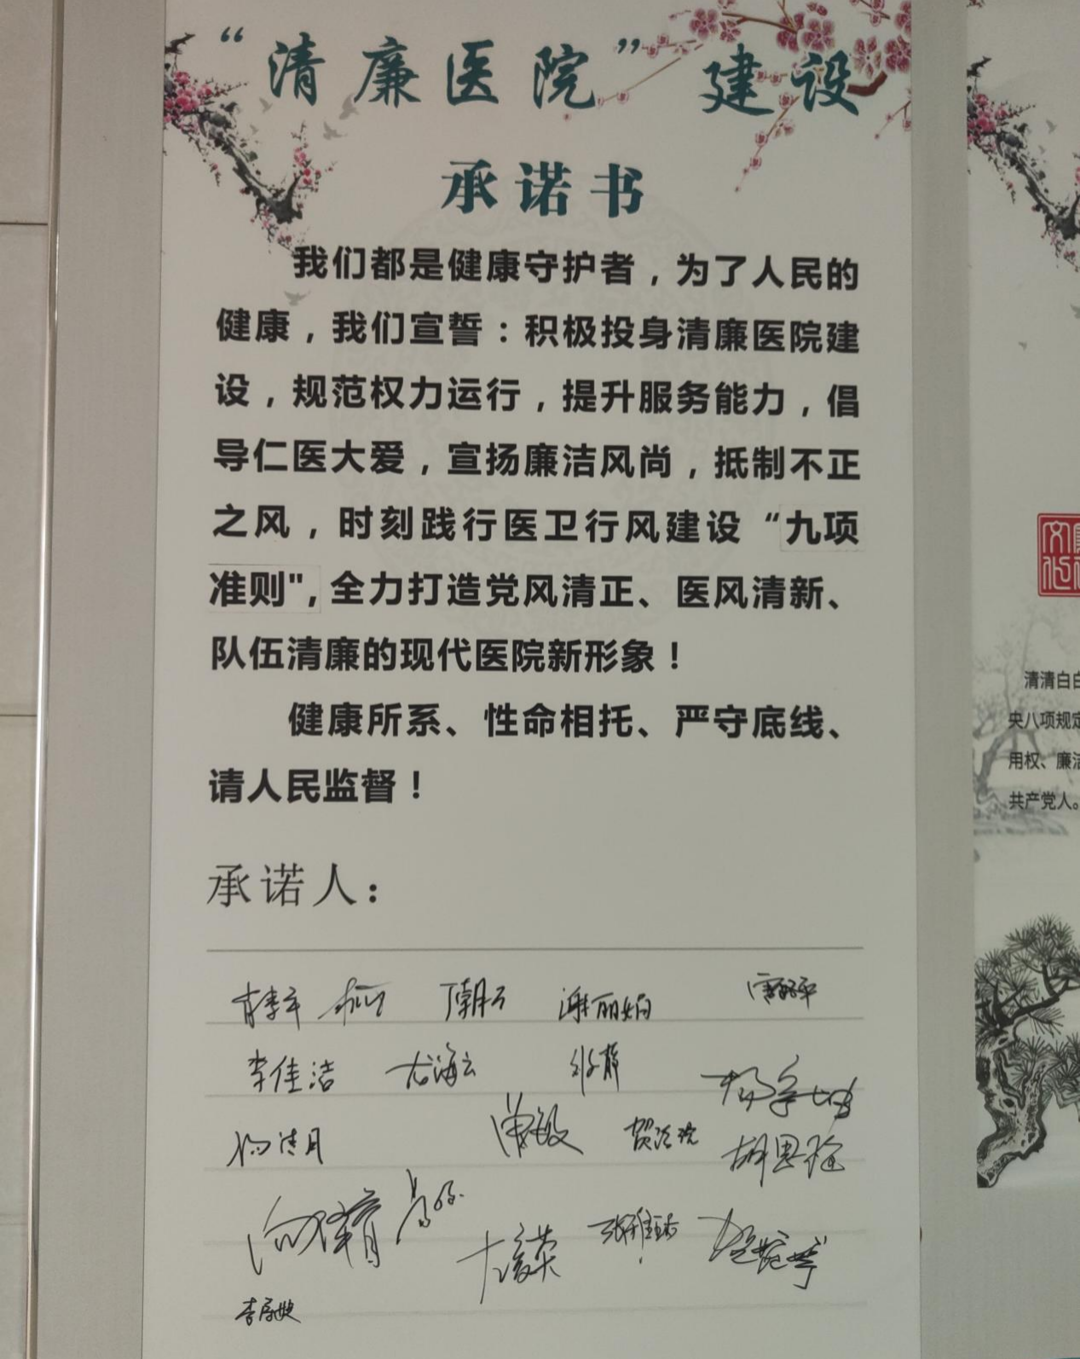 “清廉医院”建设
承诺书
我们都是健康守护者，为了人民的
健康，我们宣誓：积极投身清廉医院建
设，规范权力运行，提升服务能力，倡
导仁医大爱，宣扬廉洁风尚，抵制不正
之风，时刻践行医卫行风建设“九项
准则"，全力打造党风清正、医风清新、
队伍清廉的现代医院新形象！
健康所系、性命相托、严守底线、
请人民监督！
承诺人：
李佳洁
尤海云
清清白白
央八项规定
用权、廉洁
共产党人。